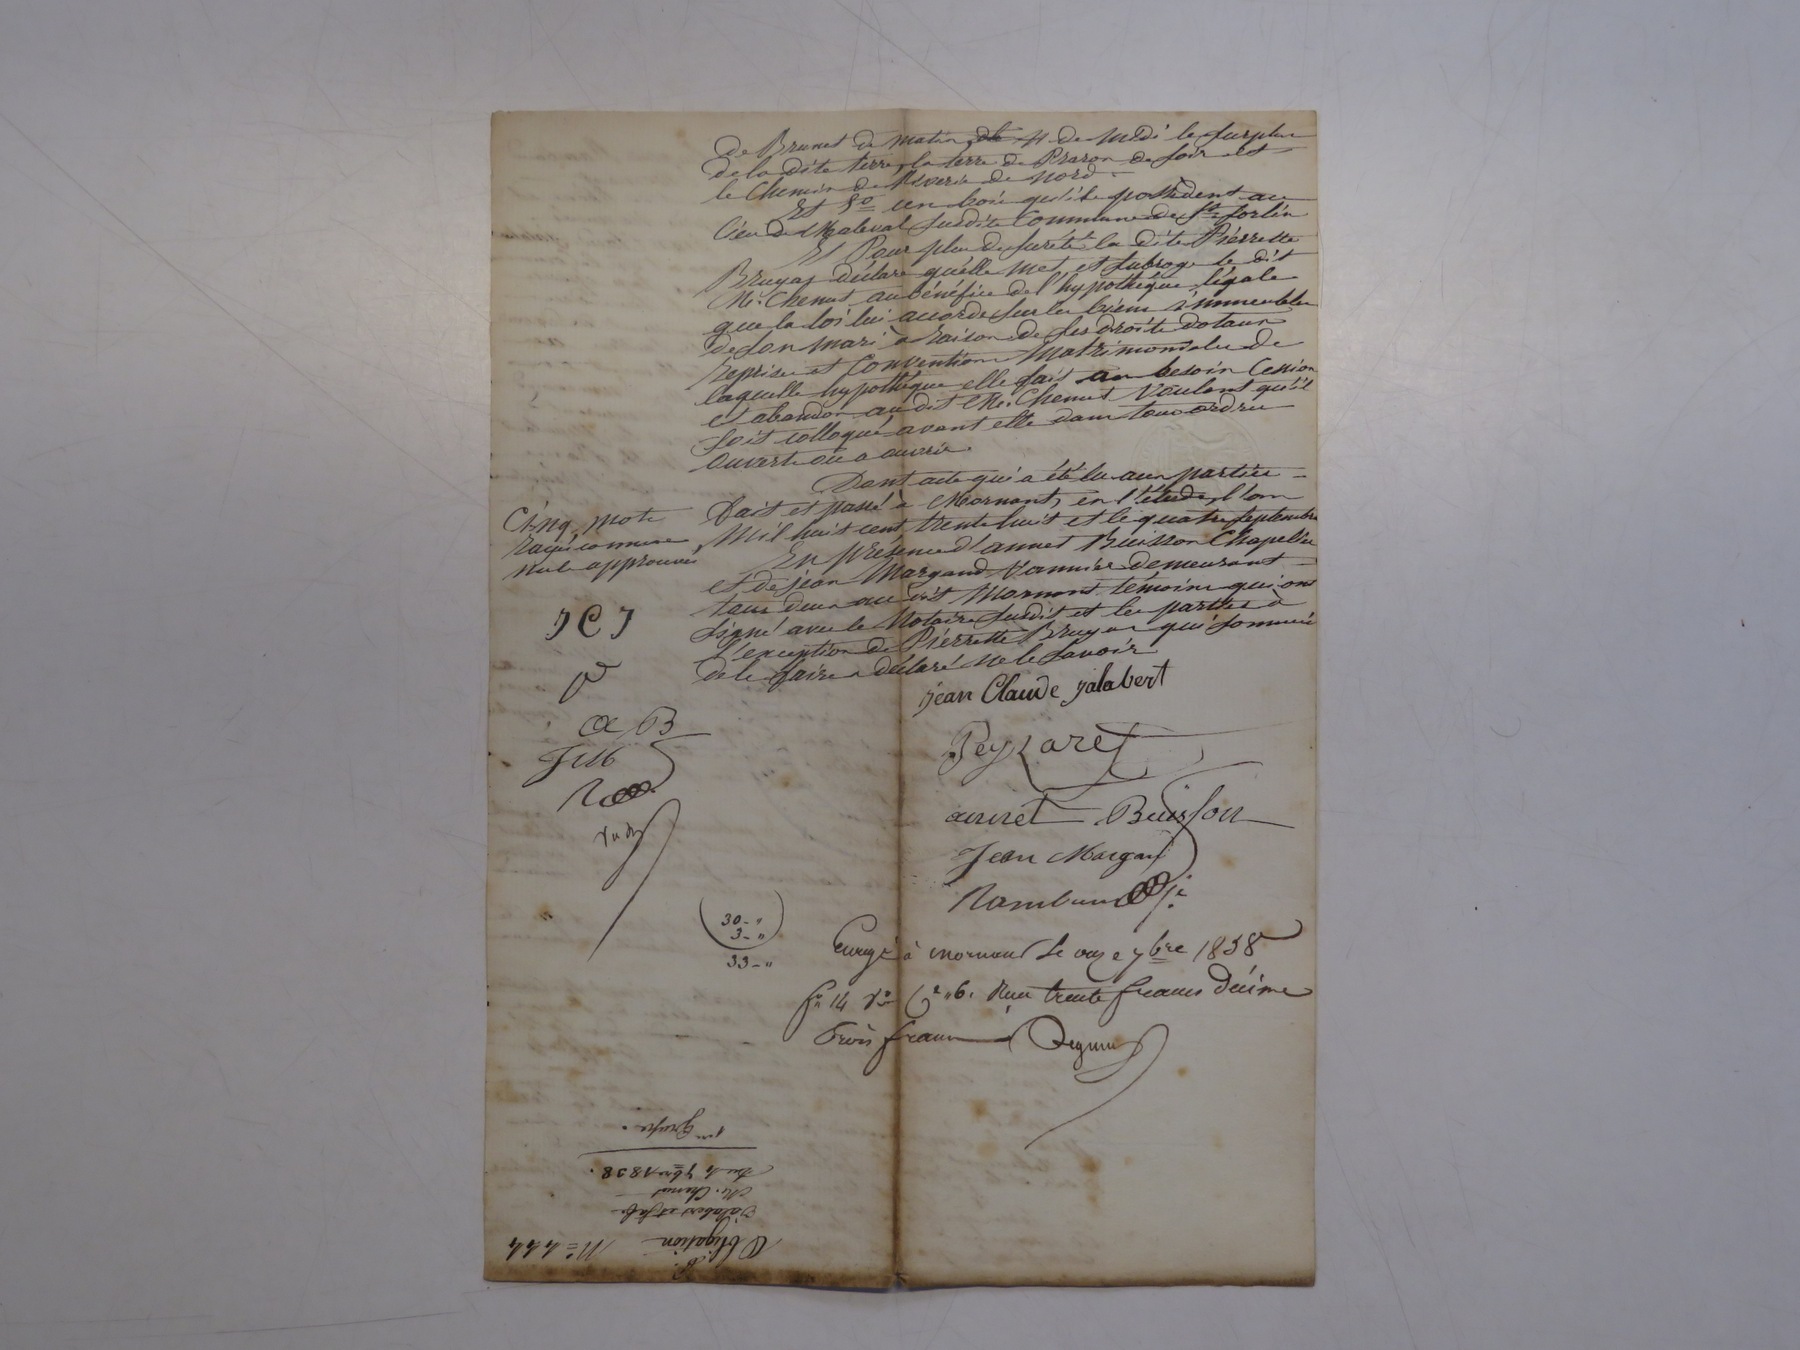 de Brunet de matin, de M. de midi le surplus
de la dite terre, la terre de Prazon de soir et
le Chemin de Riverie de nord.
Et 5o un bois qu'ils possèdent au
lieu de Maleval susdite Commune de St Sorlin
Et Pour plus de sureté la dite Pierrette
Bruyas déclare quelle met et subroge le dit
Mr. Chenut au bénéfice de l'hypothèque légale
que la loi lui accorde sur les biens immeubles
de son mari à raison de ses droits dotaux
reprises et Conventions Matrimoniales de
laquelle hypothèque elle fait au besoin Cession
et abandon au dit Mr. Chenut Voulant qu'il
soit colloqué avant elle dans tous ordres
ouverts ou a ouvrir
Dont acte qui a été lu aux parties
fait et passé à Mornant, en l'étude, l'an
Mil huit cent trente huit et le quatre septembre
En présence d'annet Buisson Chapelier
et de jean Margand Vannier demeurant
tous deux au dit Mornant témoins qui ont
signé avec le Notaire susdit et les parties à
l'exception de Pierrette Bruyas qui sommée
de le faire a déclaré ne le savoir
Cinq mots
rayés comme
nuls approuvés
J C J
P
a B
J M
R
jean Claude jalabert
Peyzaret
annet Buisson
Jean Margand
30 - "
3 - "
33 - "
à mornant le onze 7bre 1838
fo 14 Vo Cs 6. Reçu trente francs décime
Trois francs
No 444
Obligation
Jalabert et sa fe
Mr. Chenut
du 4 7bre 1838.
1ere Grosse.